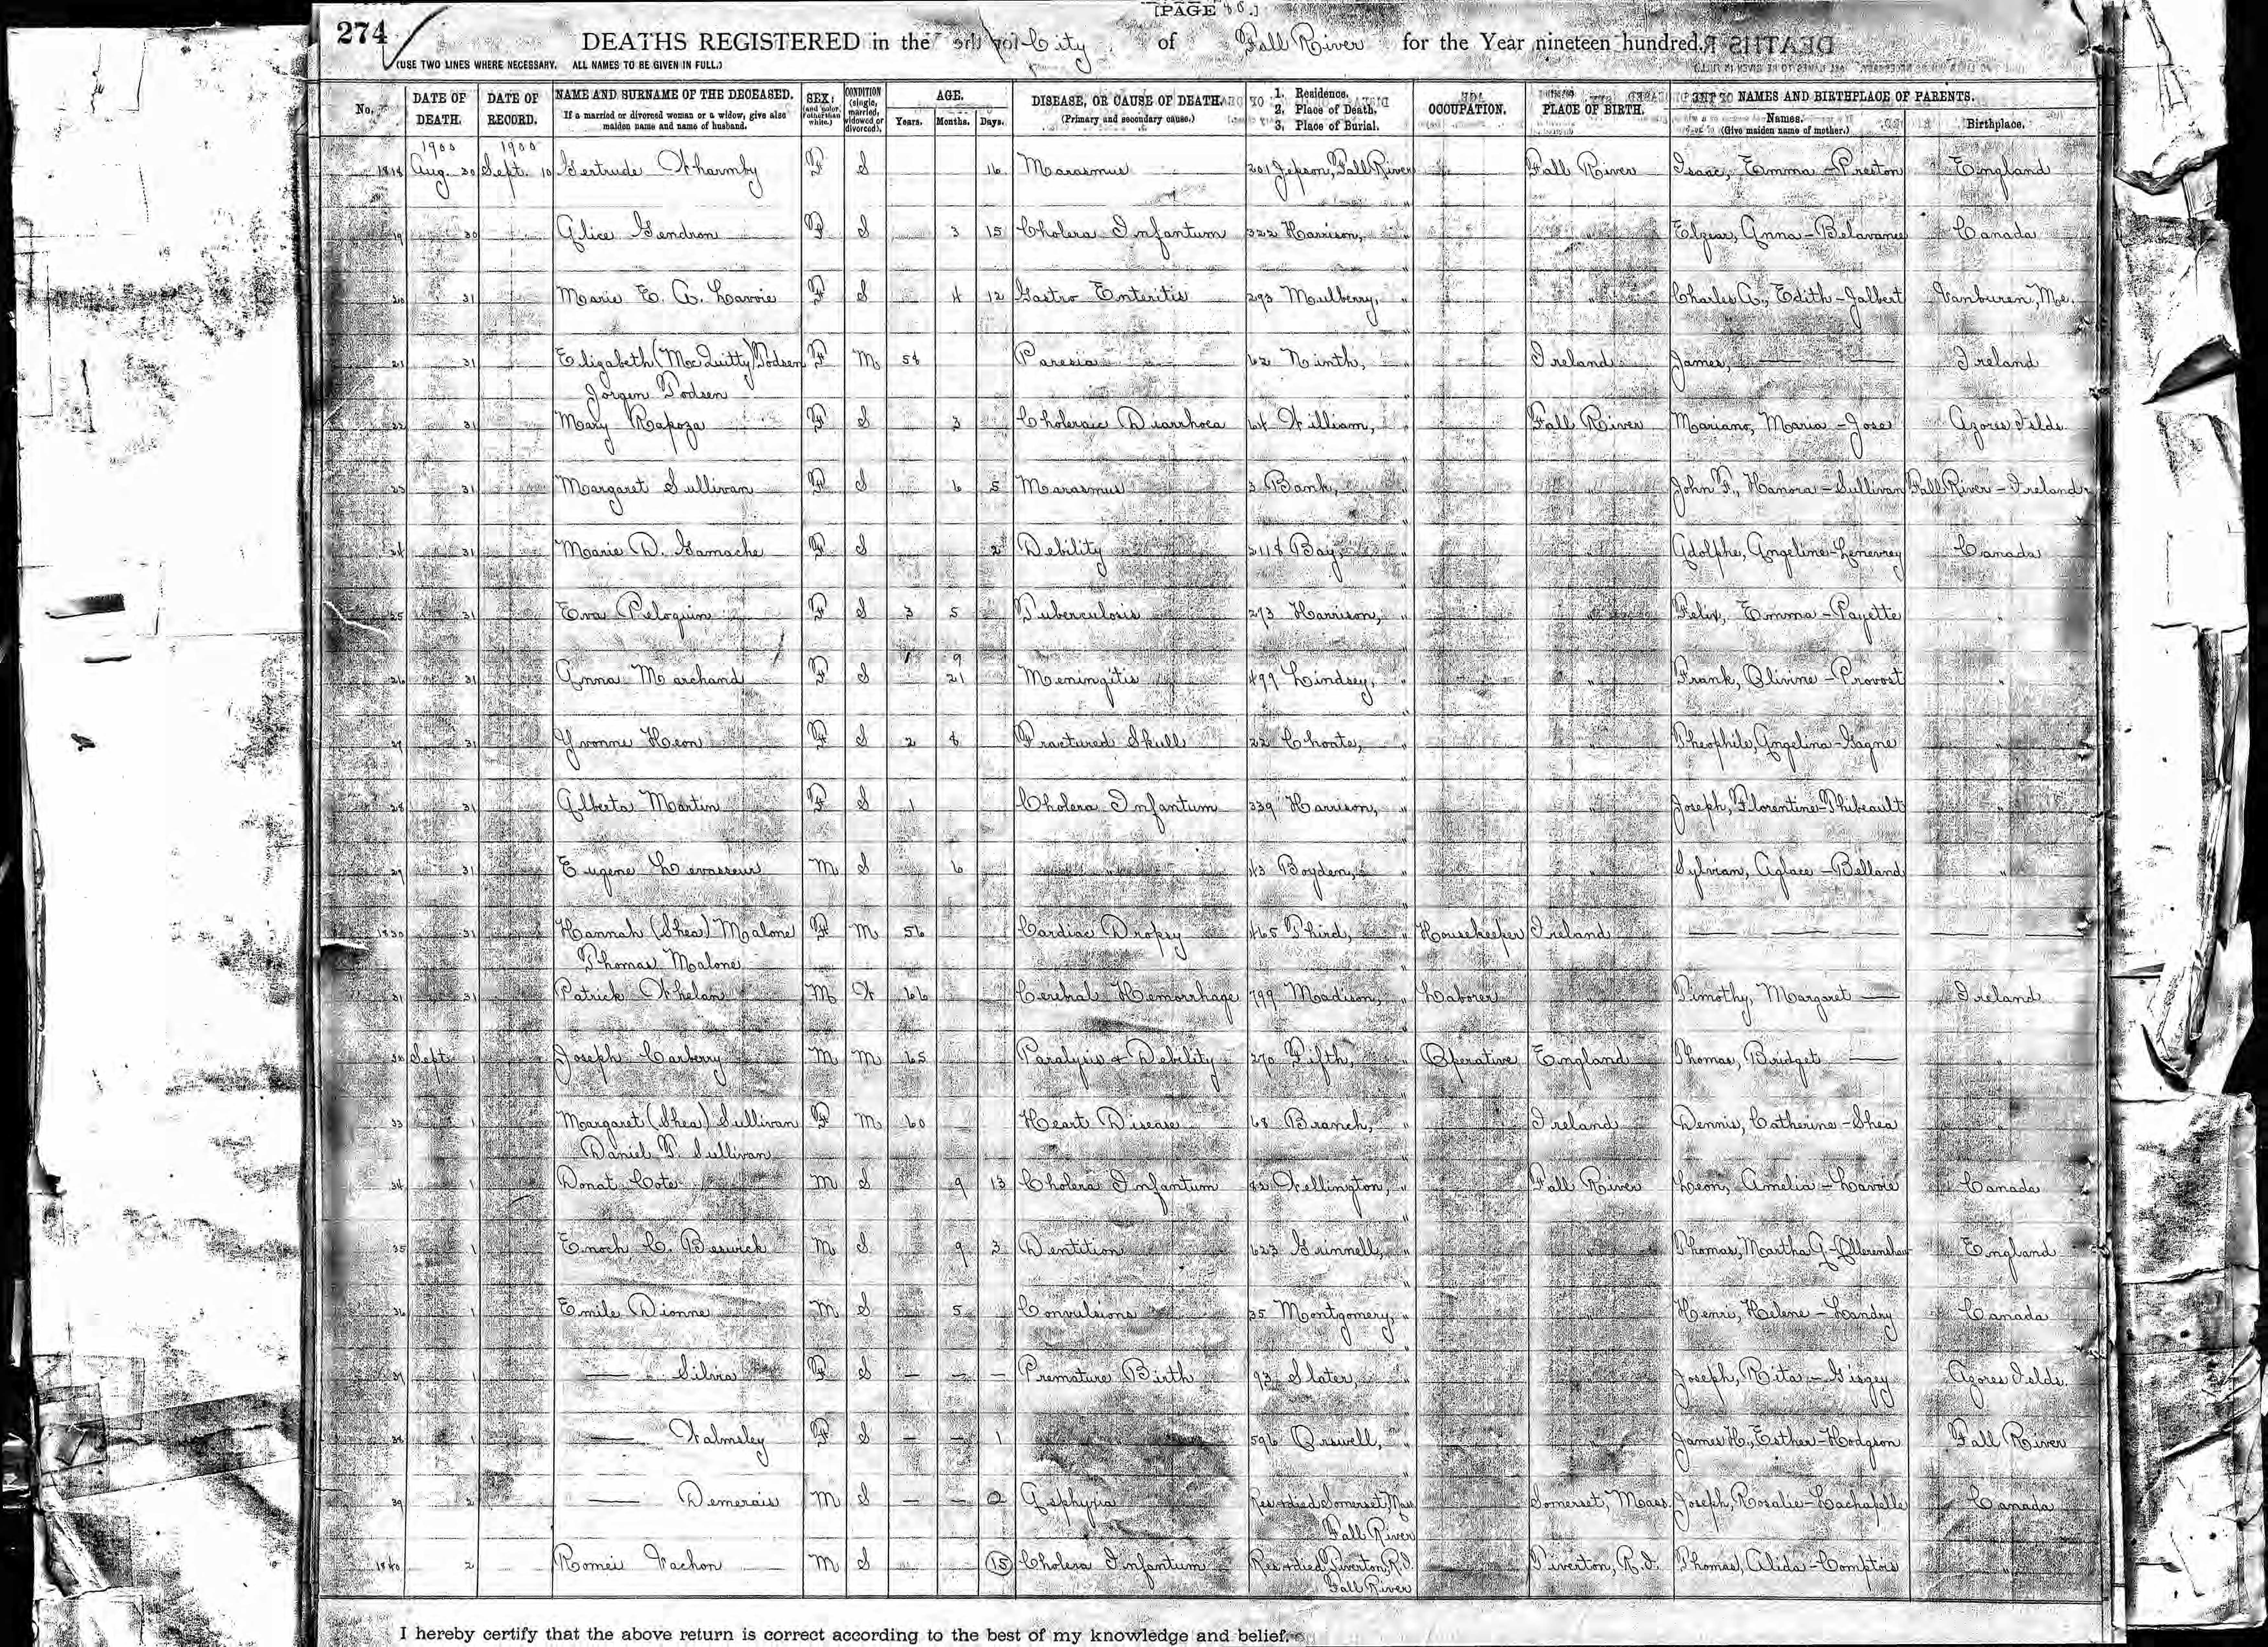 [PAGE 86.]
274
DEATHS REGISTERED in the City of Fall River for the Year nineteen hundred.
(USE TWO LINES WHERE NECESSARY. ALL NAMES TO BE GIVEN IN FULL.)
No. DATE OF DEATH. DATE OF RECORD. NAME AND SURNAME OF THE DECEASED. If a married or divorced woman or a widow, give also maiden name and name of husband. SEX: (and color, if other than white.) CONDITION (single, married, widowed or divorced). AGE. Years. Months. Days. DISEASE, OR CAUSE OF DEATH. (Primary and secondary cause.) 1. Residence. 2. Place of Death. 3. Place of Burial. OCCUPATION. PLACE OF BIRTH. NAMES AND BIRTHPLACE OF PARENTS. Names. (Give maiden name of mother.) Birthplace.
1900 1900
1818 Aug. 30 Sept. 10 Gertrude Wharmby F S 16 Marasmus 201 Jepson, Fall River Fall River Isaac, Emma - Preston England
19 30 Alice Gendron F S 3 15 Cholera Infantum 322 Harrison, " " Elzear, Anna - Belavance Canada
20 31 Marie E. A. Lavoie F S 4 12 Gastro Enteritis 293 Mulberry, " " Charles A., Edith - Jalbert Vanburen, Me.
21 31 Elizabeth (MacQuitty) Todsen F M 54 Paresis 62 Ninth, " Ireland James, — — Ireland
Jorgen Todsen
22 31 Mary Rapoza F S 3 Choleraic Diarrhoea 64 William, " Fall River Mariano, Maria - Jose Azores Islds.
23 31 Margaret Sullivan F S 6 5 Marasmus 3 Bank, " " John F., Hanora - Sullivan Fall River - Ireland
24 31 Marie D. Gamache F S 2 Debility 2118 Bay, " " Adolphe, Angeline - Canada
25 31 Eva Peloquin F S 3 5 Tuberculosis 273 Harrison, " " Felix, Emma - Payette "
1 9
26 31 Anna Marchand F S 21 Meningitis 499 Lindsey, " " Frank, Olivine - Provost "
27 31 Yvonne Heon F S 2 8 Fractured Skull 22 Choate, " " Theophile, Angelina - Gagne "
28 31 Alberta Martin F S 1 Cholera Infantum 339 Harrison, " " Joseph, Florentine - Thibeault "
29 31 Eugene Levasseur M S 6 " 43 Boyden, " " Sylvian, Aglace - Belland "
1830 31 Hannah (Shea) Malone F M 56 Cardiac Dropsy 465 Third, " Housekeeper Ireland — — — —
Thomas Malone
31 31 Patrick Whelan M W 66 Cerebral Hemorrhage 799 Madison, " Laborer " Timothy, Margaret — Ireland
32 Sept. 1 Joseph Carberry M M 65 Paralysis & Debility 270 Fifth, " Operative England Thomas, Bridget — "
33 1 Margaret (Shea) Sullivan F M 60 Heart Disease 68 Branch, " Ireland Dennis, Catherine - Shea "
Daniel T. Sullivan
34 1 Donat Cote M S 9 13 Cholera Infantum 42 Wellington, " Fall River Leon, Amelia - Lavoie Canada
35 1 Enoch C. Beswick M S 9 3 Dentition 623 Grinnell, " " Thomas, Martha A. - Ollerenshaw England
36 1 Emile Dionne M S 5 Convulsions 35 Montgomery, " " Henri, Helene - Landry Canada
37 1 — Silvia F S — — — Premature Birth 93 Slater, " " Joseph, Rita - Azores Islds.
38 1 — Walmsley F S — — 1 " 596 Orswell, " " James H., Esther - Hodgson Fall River
39 2 — Demerais M S — — 0 Asphyxia Res. & died Somerset, Mass. Somerset, Mass. Joseph, Rosalie - Lachapelle Canada
Fall River
1840 2 Romeo Vachon M S 15 Cholera Infantum Res. & died Tiverton, R.I. Tiverton, R.I. Thomas, Alida - Comptois "
Fall River
I hereby certify that the above return is correct according to the best of my knowledge and belief.